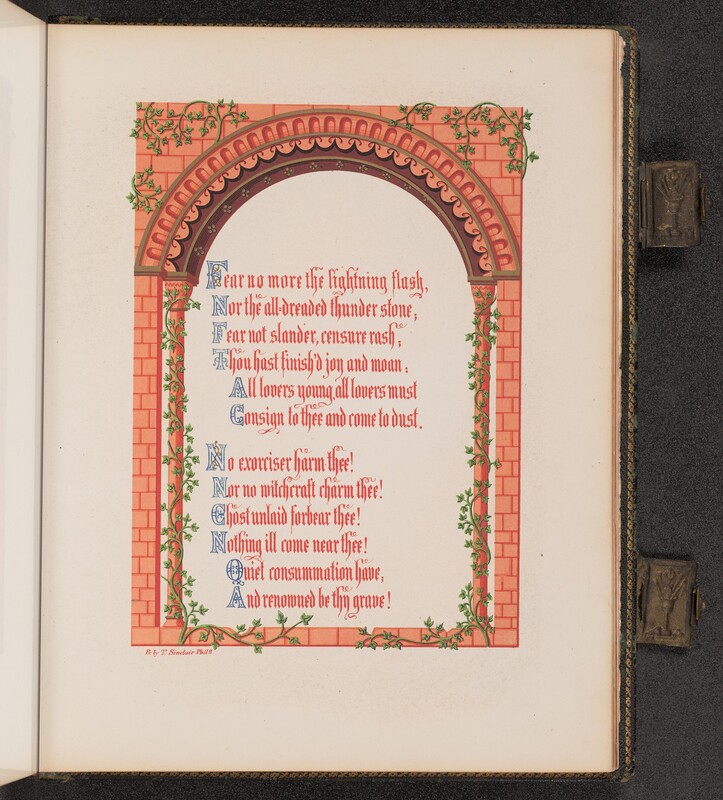 Fear no more the lightning flash,
Nor the all-dreaded thunder stone;
Fear not slander, censure rash;
Thou hast finish'd joy and moan:
All lovers young, all lovers must
Consign to thee and come to dust.
No exorciser harm thee!
Nor no witchcraft charm thee!
Ghost unlaid forbear thee!
Nothing ill come near thee!
Quiet consummation have,
And renowned be thy grave!
by T. Sinclair Phila